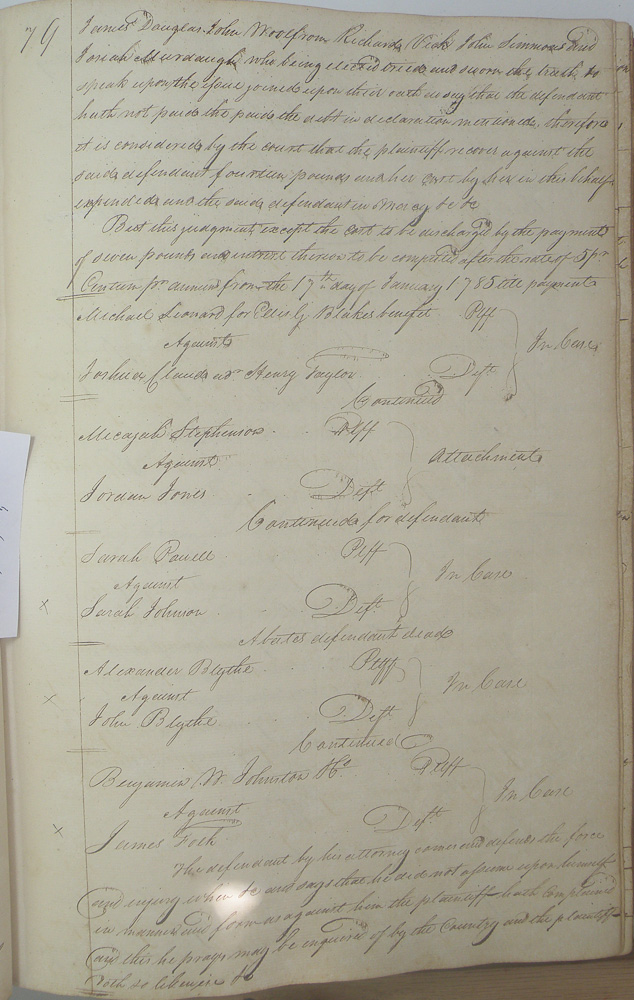 79
James Douglas John Woolfrom Richard Vick John Simmons and
Josiah Murdaugh who being elected tried and sworn the truth to
speak upon the issue joined upon their oath do say that the defendant
hath not paid the paid the debt in declaration mentioned, therefore
it is considered by the court that the plaintiff recover against the
said defendant fourteen pounds and her cost by her in this behalf
expended and the said defendant in Mercy &c &c
But this judgment, except the cost to be discharged by the payment
of seven pounds and interest thereon to be computed after the rate of 5 pr
Centum pr annum from the 17th day of January 1785 till payment
Michael Leonard for Blakes benefit Plff
Against In Case
Joshua Claud adr Henry Taylor Deft
Continued
Micajah Stephenson Plff
Against Attachment
Jordan Jones Deft
Continued for defendant
Sarah Powell Plff
Against In Case
x Sarah Johnson Deft
Abates defendant dead
Alexander Blythe Plff
x Against In Case
John Blythe Deft
Continued
Benjamin W. Johnston &c Plff
Against In Case
x James Deft
The defendant by his attorney comes and defends the force
and injury when &c and says that he did not assume upon himself
in manner and form as against him the plaintiff hath complained
and this he prays may be enquired of by the Country and the plaintiff
doth so likewise &c